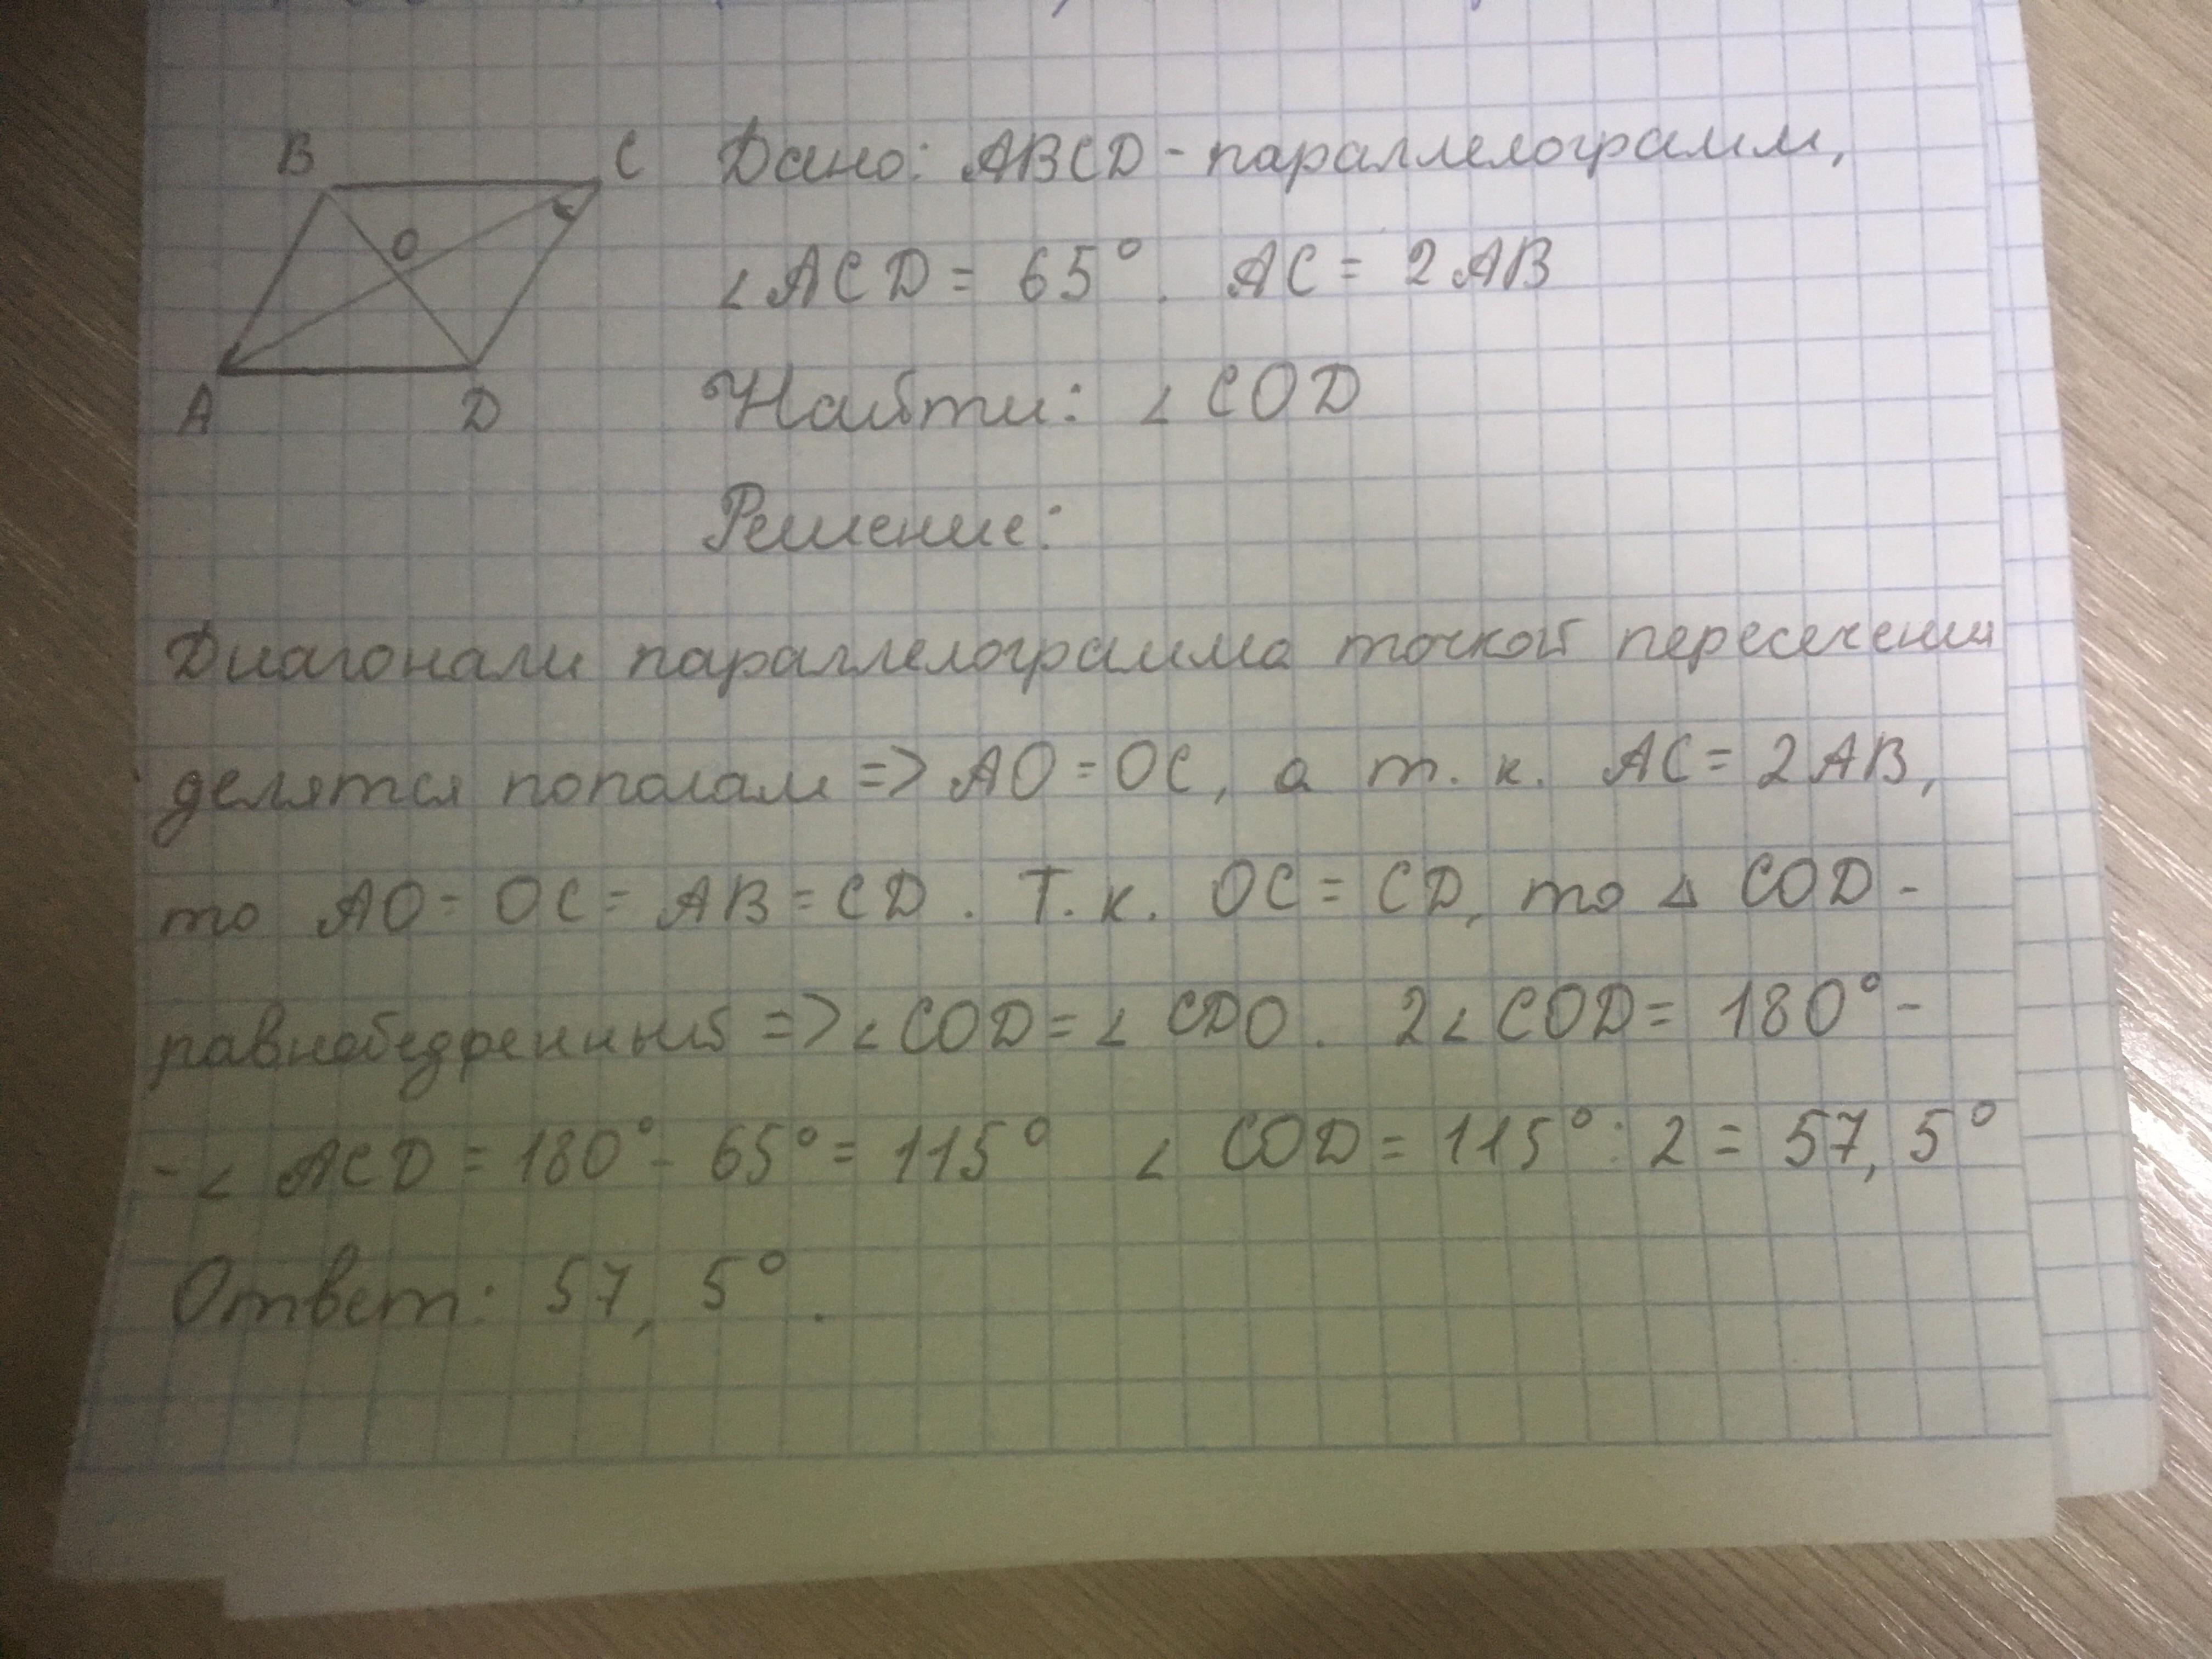 B C Дано: ABCD - параллелограмм,
O ∠ACD = 65°. AC = 2AB
A D Найти: ∠COD
Решение:
Диагонали параллелограмма точкой пересечения
делятся пополам => AO = OC, а т. к. AC = 2AB,
то AO = OC = AB = CD. Т. к. OC = CD, то △ COD -
равнобедренный => ∠COD = ∠CDO. 2∠COD = 180° -
- ∠ACD = 180° - 65° = 115° ∠COD = 115° : 2 = 57,5°
Ответ: 57,5°.